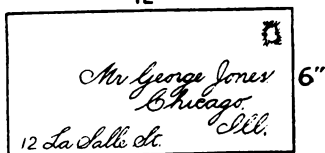 Mr George Jones
6"
Chicago.
Ill.
12 La Salle St.